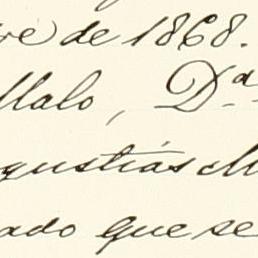 re de 1868.
Malo, Dª
gustias M
ado que se